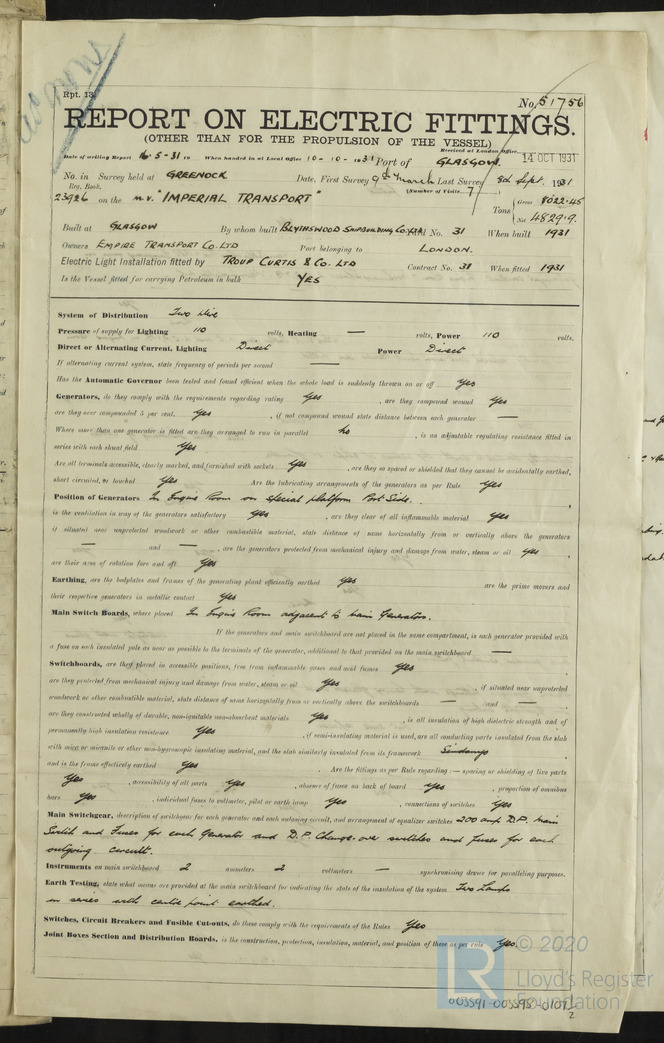 Rpt. 13.
No. 51756
REPORT ON ELECTRIC FITTINGS.
(OTHER THAN FOR THE PROPULSION OF THE VESSEL)
Received at London Office
14 OCT 1931
Date of writing Report 16-5-31 19 When handed in at Local Office 10-10-1931 Port of GLASGOW.
No. in Survey held at GREENOCK Date, First Survey 9th March Last Survey 8th Sept. 1931
Reg. Book. (Number of Visits 7
23926 on the M.V. "IMPERIAL TRANSPORT" Tons { Gross 8022.45
Net 4829.9.
Built at GLASGOW By whom built BLYTHSWOOD SHIPBUILDING Co. LTD Yard No. 31 When built 1931
Owners EMPIRE TRANSPORT Co. LTD Port belonging to LONDON.
Electric Light Installation fitted by TROUP CURTIS & Co. LTD Contract No. 31 When fitted 1931
Is the Vessel fitted for carrying Petroleum in bulk YES
System of Distribution Two Wire
Pressure of supply for Lighting 110 volts, Heating — volts, Power 110 volts.
Direct or Alternating Current, Lighting Direct Power Direct
If alternating current system, state frequency of periods per second —
Has the Automatic Governor been tested and found efficient when the whole load is suddenly thrown on or off Yes
Generators, do they comply with the requirements regarding rating Yes , are they compound wound Yes
are they over compounded 5 per cent. Yes , if not compound wound state distance between each generator —
Where more than one generator is fitted are they arranged to run in parallel No , is an adjustable regulating resistance fitted in
series with each shunt field Yes
Are all terminals accessible, clearly marked, and furnished with sockets Yes , are they so spaced or shielded that they cannot be accidentally earthed,
short circuited, or touched Yes Are the lubricating arrangements of the generators as per Rule Yes
Position of Generators In Engine Room on special platform Port Side.
is the ventilation in way of the generators satisfactory Yes , are they clear of all inflammable material Yes
if situated near unprotected woodwork or other combustible material, state distance of same horizontally from or vertically above the generators
— and — , are the generators protected from mechanical injury and damage from water, steam or oil Yes ,
are their axes of rotation fore and aft Yes
Earthing, are the bedplates and frames of the generating plant efficiently earthed Yes are the prime movers and
their respective generators in metallic contact Yes
Main Switch Boards, where placed In Engine Room adjacent to Main Generators.
If the generators and main switchboard are not placed in the same compartment, is each generator provided with
a fuse on each insulated pole as near as possible to the terminals of the generator, additional to that provided on the main switchboard —
Switchboards, are they placed in accessible positions, free from inflammable gases and acid fumes Yes ,
are they protected from mechanical injury and damage from water, steam or oil Yes , if situated near unprotected
woodwork or other combustible material, state distance of same horizontally from or vertically above the switchboards — and — ,
are they constructed wholly of durable, non-ignitable non-absorbent materials Yes , is all insulation of high dielectric strength and of
permanently high insulation resistance Yes , if semi-insulating material is used, are all conducting parts insulated from the slab
with mica or micanite or other non-hygroscopic insulating material, and the slab similarly insulated from its framework Sindanyo ,
and is the frame effectively earthed Yes . Are the fittings as per Rule regarding :— spacing or shielding of live parts
Yes , accessibility of all parts Yes , absence of fuses on back of board Yes , proportion of omnibus
bars Yes , individual fuses to voltmeter, pilot or earth lamp Yes , connections of switches Yes
Main Switchgear, description of switchgear for each generator and each outgoing circuit, and arrangement of equalizer switches 200 amp D.P. Main
Switch and Fuses for each Generator and D.P. Change-over switches and fuses for each
outgoing circuit.
Instruments on main switchboard 2 ammeters 2 voltmeters — synchronising device for paralleling purposes.
Earth Testing, state what means are provided at the main switchboard for indicating the state of the insulation of the system Two Lamps
in series with centre point earthed.
Switches, Circuit Breakers and Fusible Cut-outs, do these comply with the requirements of the Rules Yes
Joint Boxes Section and Distribution Boards, is the construction, protection, insulation, material, and position of these as per rule Yes.
© 2020
LR Lloyd's Register
Foundation
003591-003598-0107
2